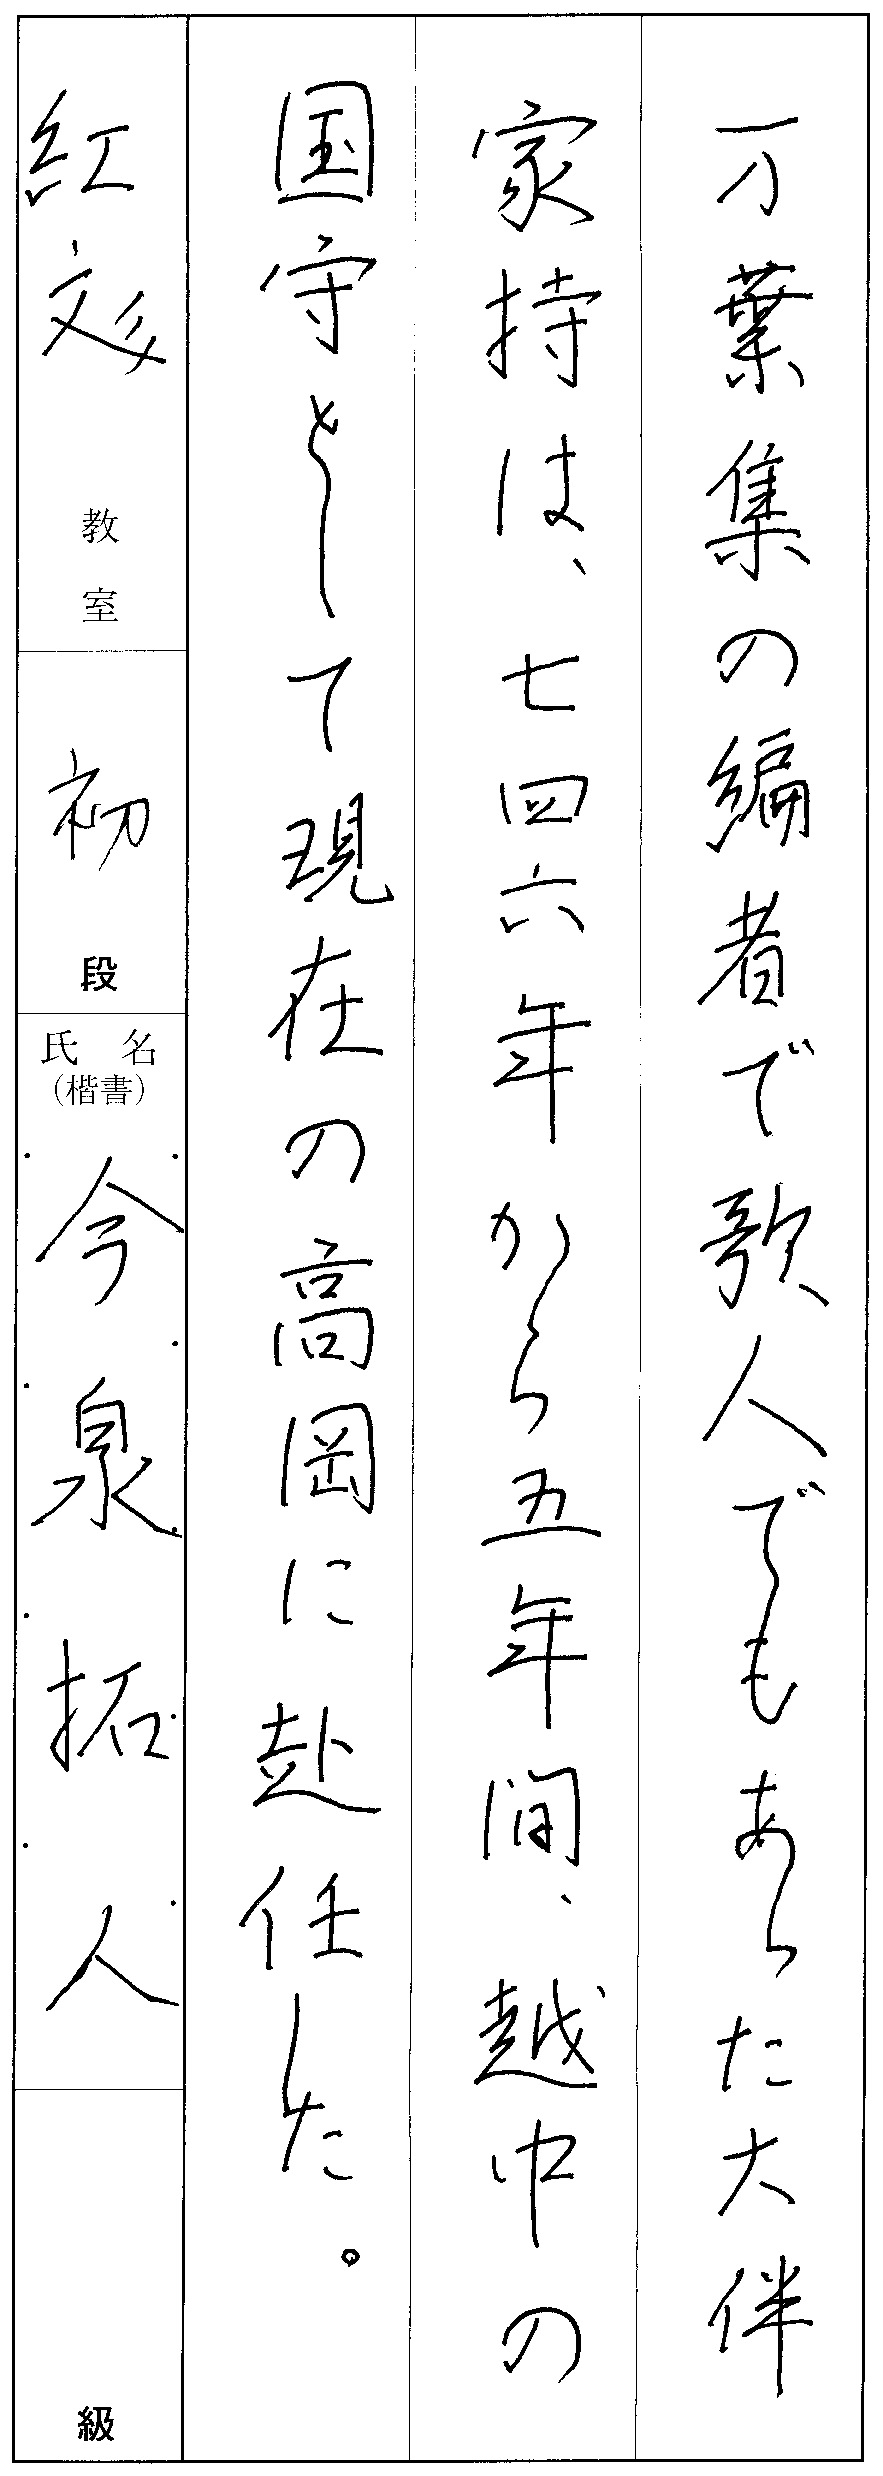 万葉集の編者で歌人でもあった大伴
家持は、七四六年から五年間、越中の
国守として現在の高岡に赴任した。
紅彩 教室
初 段
氏名
(楷書)
今泉拓人
級